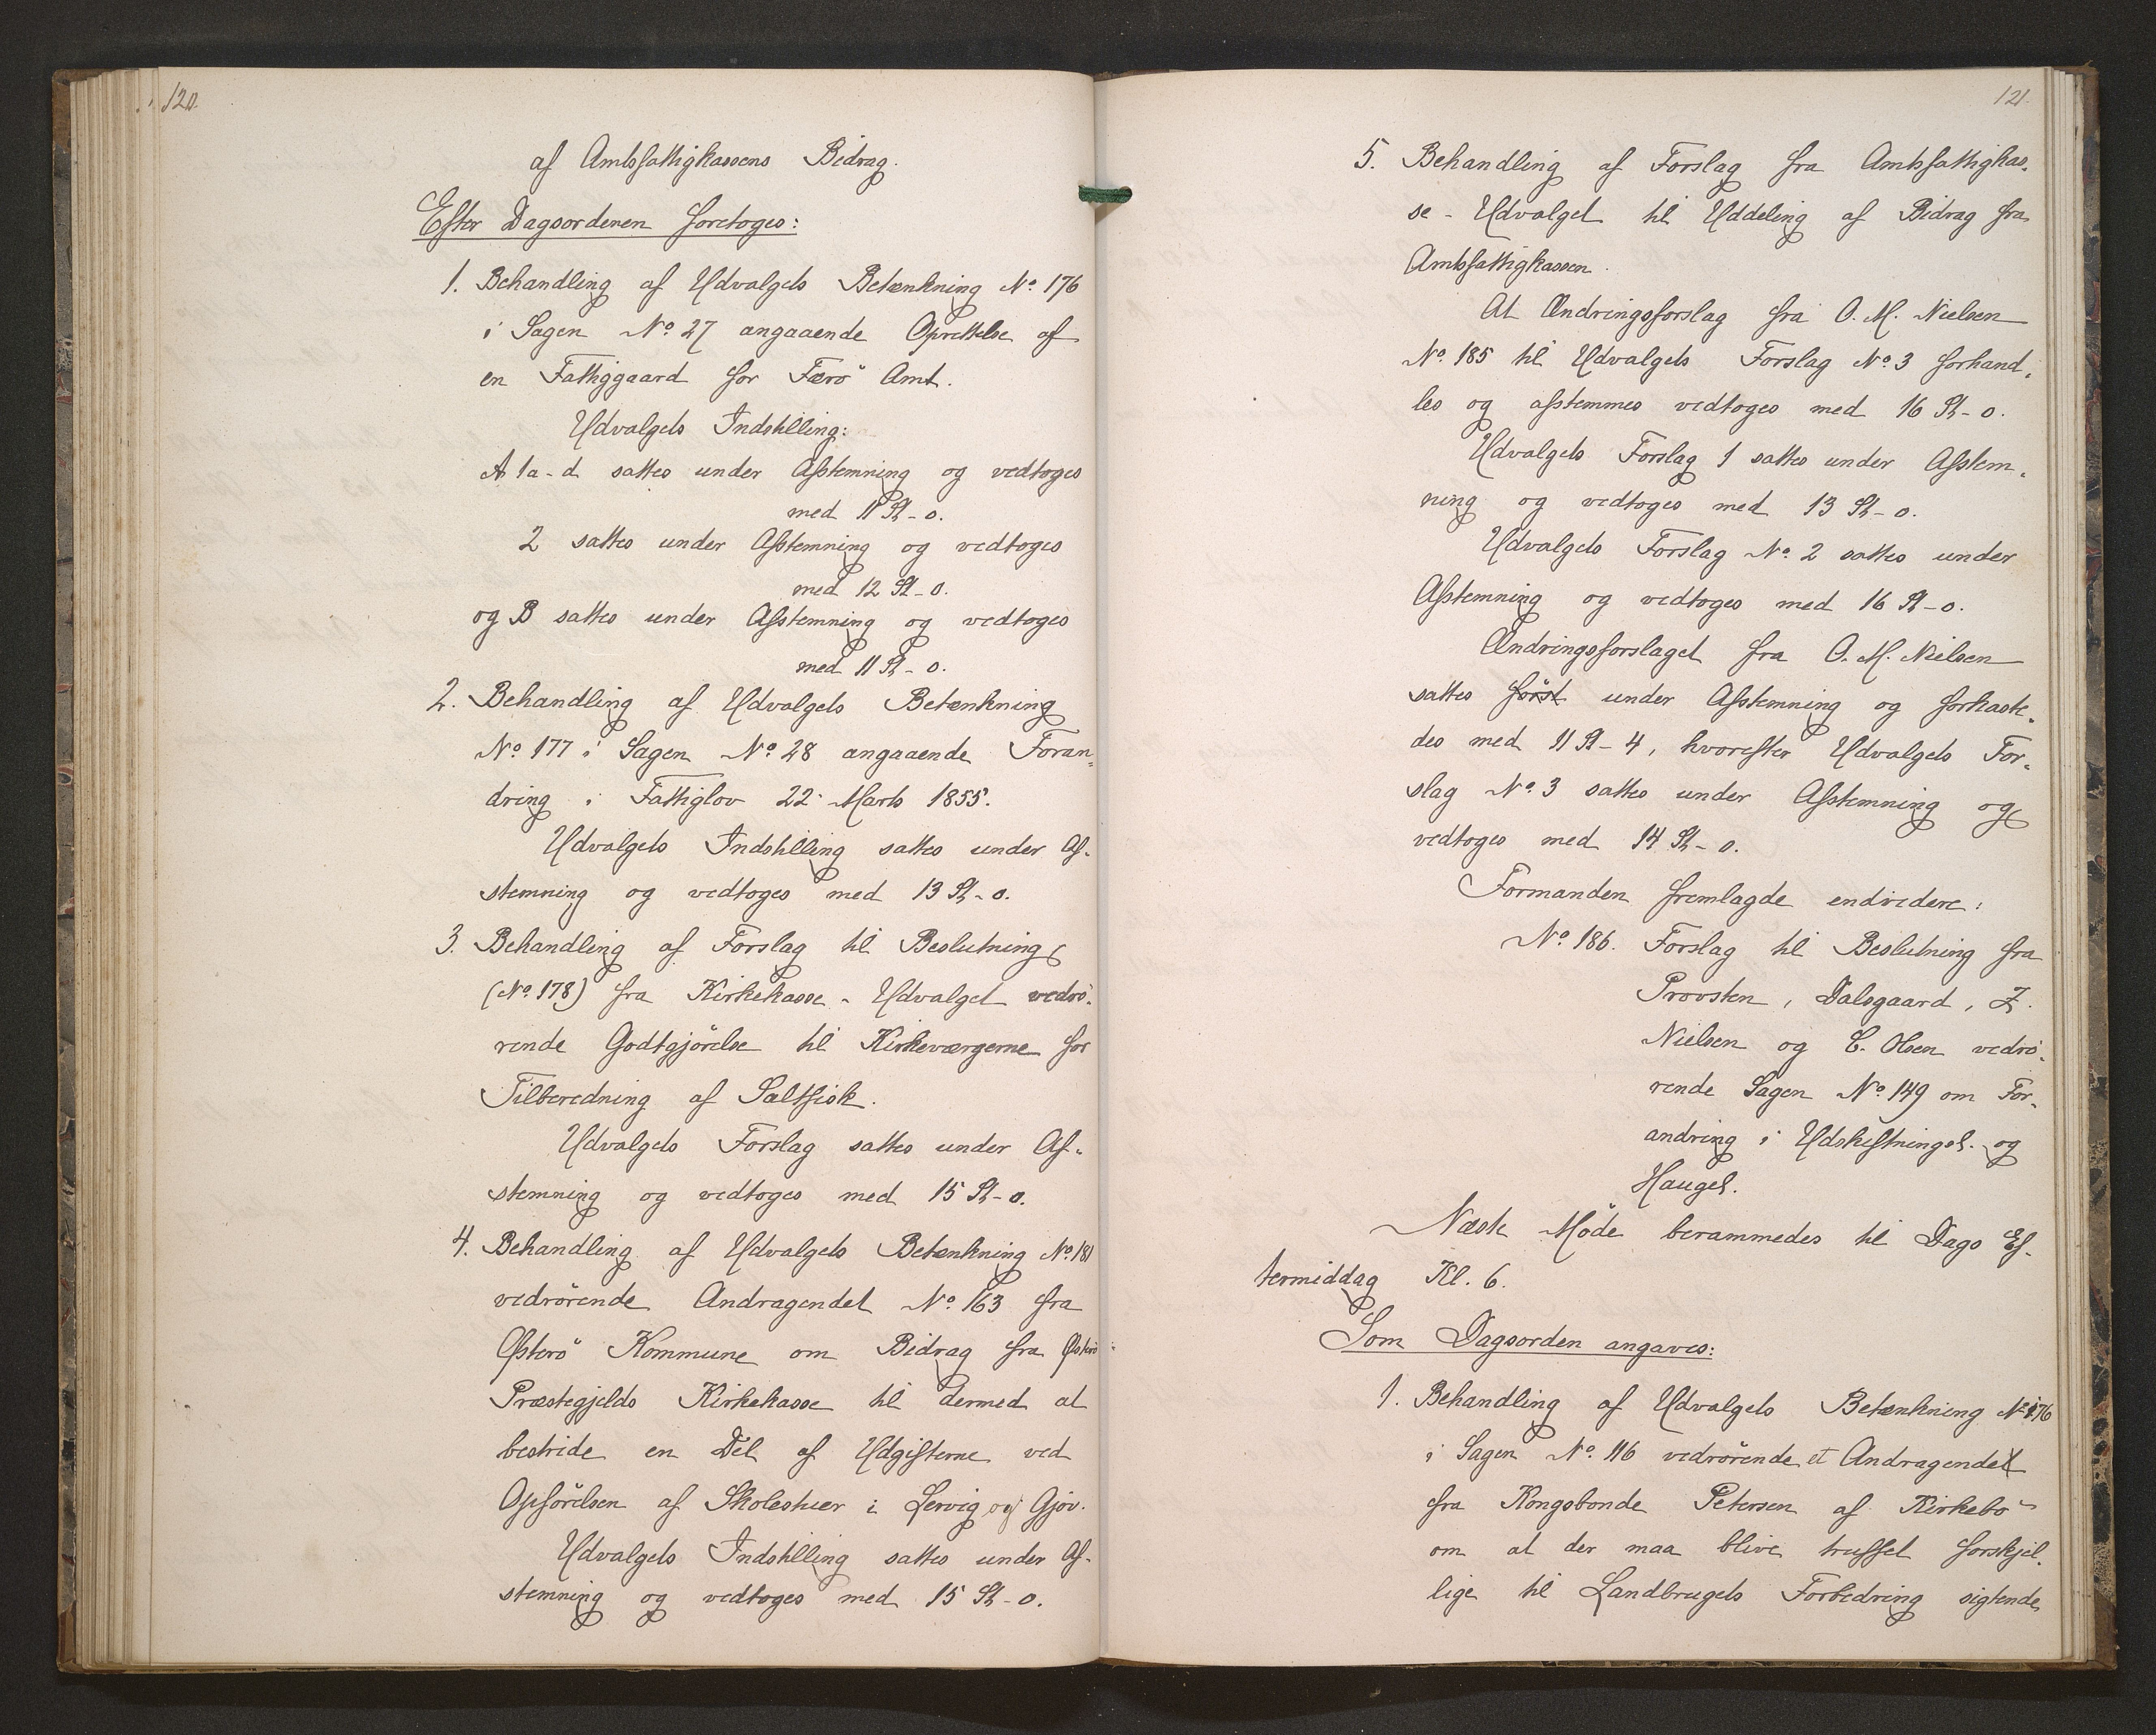 120.
af Amtsfattigkassens Bidrag.
Efter Dagsordenen foretoges:
1. Behandling af Udvalgets Betænkning No. 176
i Sagen No. 27 angaaende Oprettelse af
en Fattiggaard for Færö Amt.
Udvalgets Indstilling:
A 1a-d sattes under Afstemning og vedtoges
med 11 St-0.
2 sattes under Afstemning og vedtoges
med 12 St-0.
og B sattes under Afstemning og vedtoges
med 11 St-0.
2. Behandling af Udvalgets Betænkning
No. 177 i Sagen No. 28 angaaende Foran-
dring i Fattiglov 22 Marts 1855.
Udvalgets Indstilling sattes under Af-
stemning og vedtoges med 13 St-0.
3. Behandling af Forslag til Beslutning
(No. 178) fra Kirkekasse-Udvalget vedrö-
rende Godtgjörelse til Kirkeværgerne for
Tilberedning af Saltfisk.
Udvalgets Forslag sattes under Af-
stemning og vedtoges med 15 St-0.
4. Behandling af Udvalgets Betænkning No. 181
vedrörende Andragendet No. 163 fra
Østerö Kommune om Bidrag fra Østerö
Præstegjelds Kirkekasse til dermed at
bestride en Del af Udgifterne ved
Opförelsen af Skoleshuer i Lervig og Gjov.
Udvalgets Indstilling sattes under Af-
stemning og vedtoges med 15 St-0.
121.
5. Behandling af Forslag fra Amtsfattigkas-
se-Udvalget til Uddeling af Bidrag fra
Amtsfattigkassen.
At Ændringsforslag fra O. M. Nielsen
No. 185 til Udvalgets Forslag No. 3 forhand-
les og afstemmes vedtoges med 16 St-0.
Udvalgets Forslag 1 sattes under Afstem-
ning og vedtoges med 13 St-0.
Udvalgets Forslag No. 2 sattes under
Afstemning og vedtoges med 16 St-0.
Ændringsforslaget fra O. M. Nielsen
sattes först under Afstemning og forkaste-
des med 11 St-4, hvorefter Udvalgets For-
slag No. 3 sattes under Afstemning og
vedtoges med 14 St-0.
Formanden fremlagde endvidere:
No. 186. Forslag til Beslutning fra
Provsten, Dalsgaard, Z.
Nielsen og C. Olsen vedrö-
rende Sagen No. 149 om For-
andring i Udskiftningsl. og
Haugel.
Næste Möde berammedes til Dags Ef-
termiddag Kl. 6.
Som Dagsorden angaves:
1. Behandling af Udvalgets Betænkning No. 176
i Sagen No. 116 vedrörende et Andragende
fra Kongsbonde Petersen af Kirkebö
om at der maa blive truffet forskjel-
lige til Landbrugets Forbedring sigtende